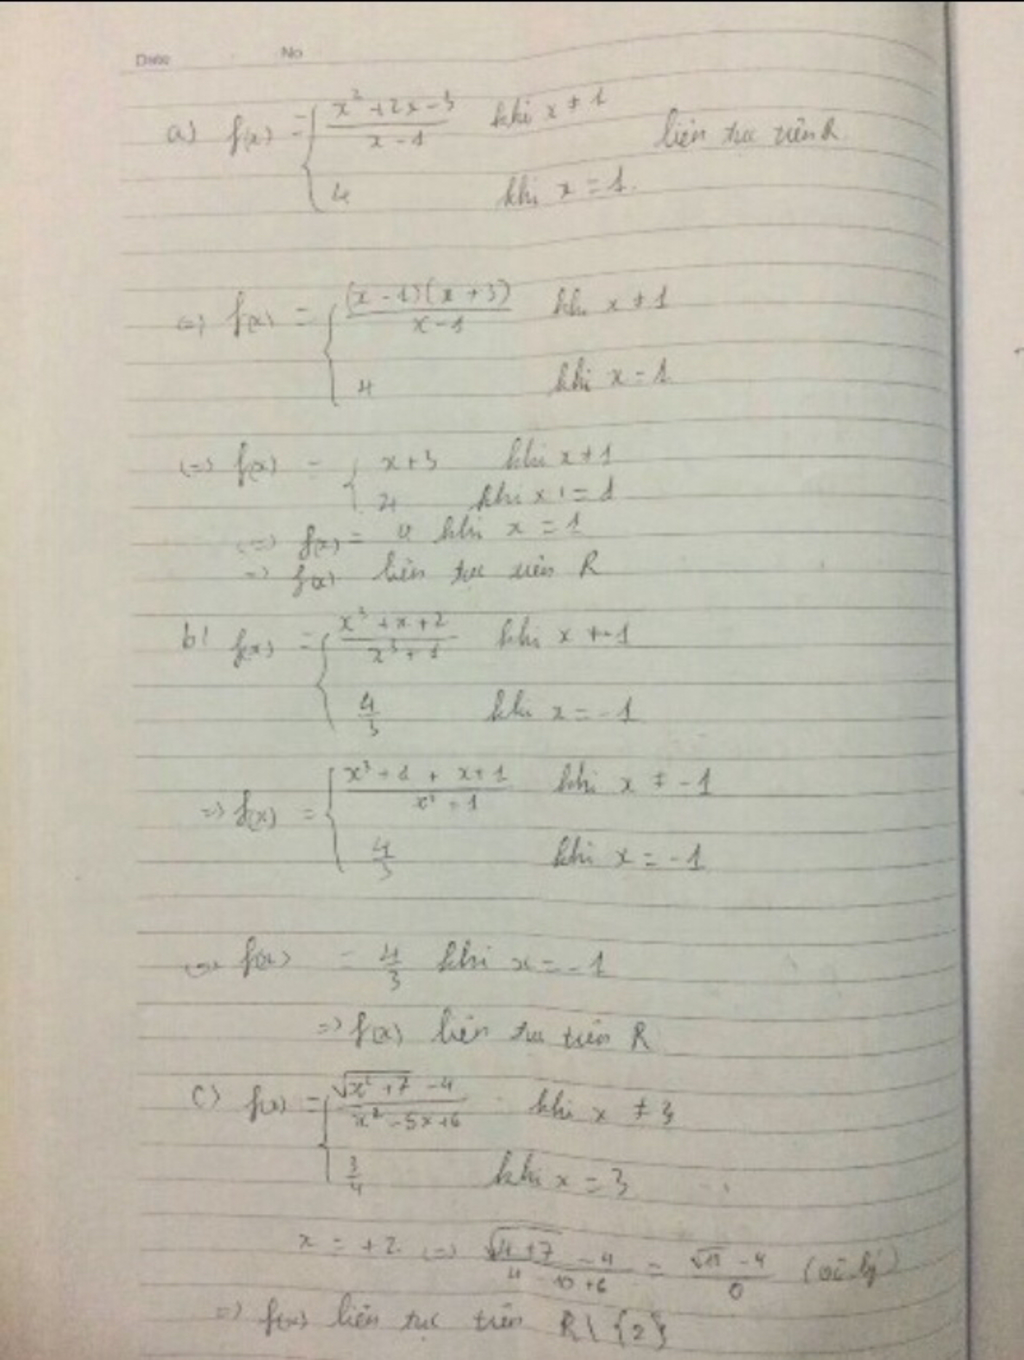 Date No
a) f(x) = { (x² + 2x - 3)/(x - 1) khi x ≠ 1 liên tục trên R
4 khi x = 1.
=> f(x) = { (x - 1)(x + 3)/(x - 1) khi x ≠ 1
4 khi x = 1
(=> f(x) = { x + 3 khi x ≠ 1
4 khi x = 1
(=> f(x) = 4 khi x = 1
=> f(x) liên tục trên R
b) f(x) = { (x³ + x + 2)/(x³ + 1) khi x ≠ -1
4/3 khi x = -1
=> f(x) = { (x³ + 1 + x + 1)/(x³ + 1) khi x ≠ -1
4/3 khi x = -1
=> f(x) = 4/3 khi x = -1
=> f(x) liên tục trên R
c) f(x) = { (√(x² + 7) - 4)/(x² - 5x + 6) khi x ≠ 3
3/4 khi x = 3
x = +2 (=> (√(4 + 7) - 4)/(4 - 10 + 6) = (√11 - 4)/0 (vô lý)
=> f(x) liên tục trên R \ {2}